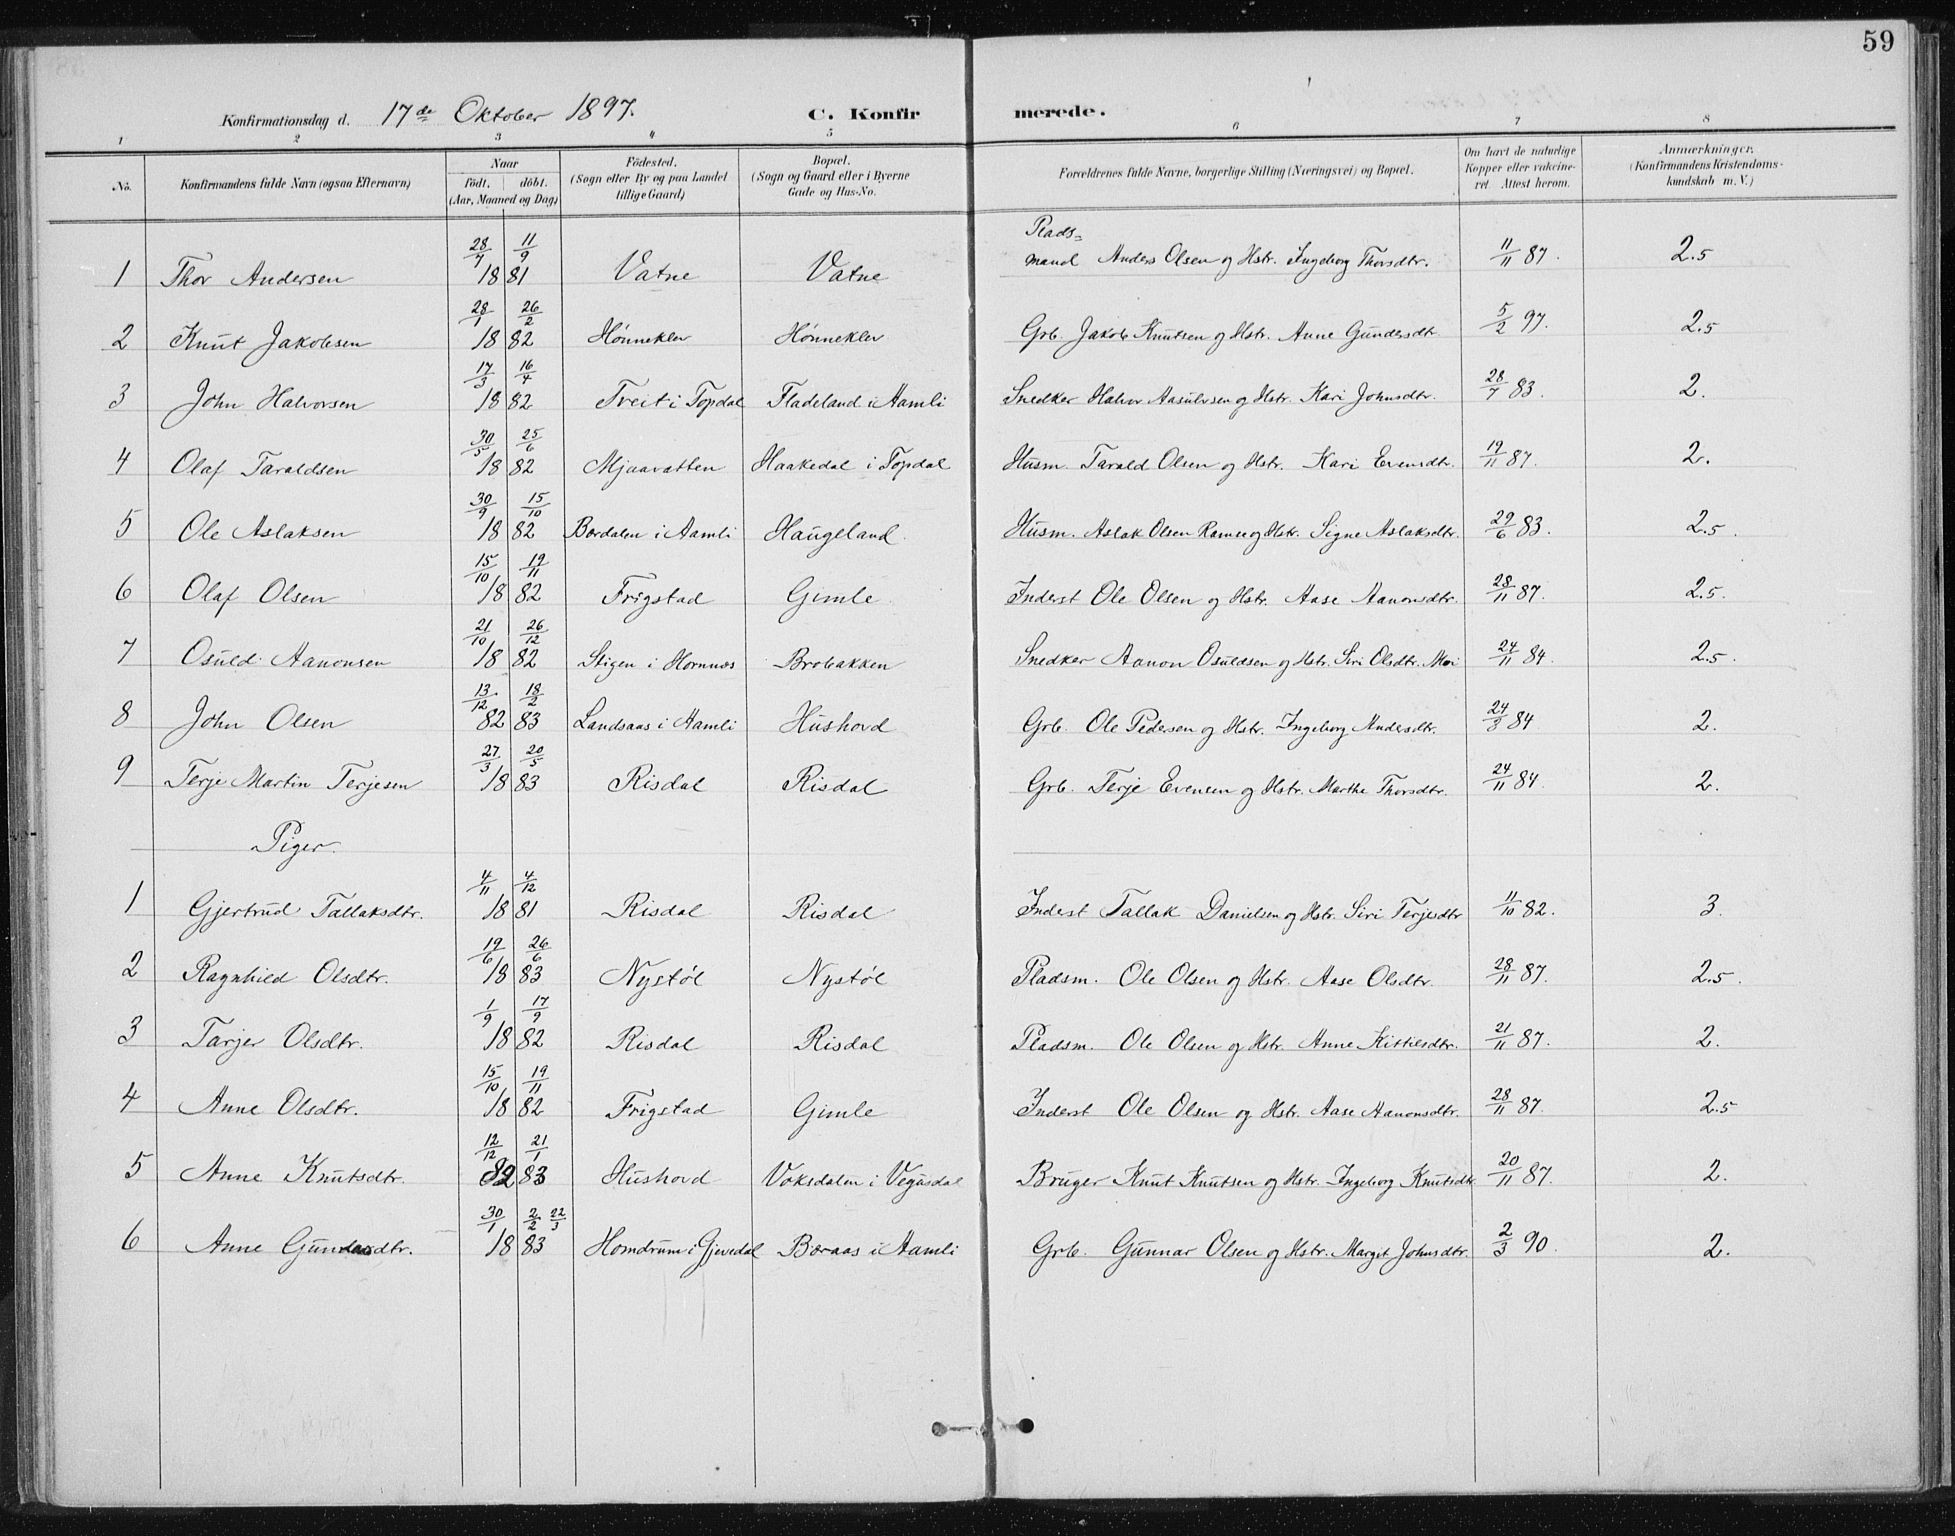 59
Konfirmationsdag d. 17de Oktober 1897. C. Konfirmerede.
1 2 3 4 5 6 7 8
No. Konfirmandens fulde Navn (ogsaa Efternavn) Naar født. døbt. (Aar, Maaned og Dag) Fødested. (Sogn eller By og paa Landet tillige Gaard) Bopæl. (Sogn og Gaard eller i Byerne Gade og Hus-No. Forældrenes fulde Navne, borgerlige Stilling (Næringsvei) og Bopæl. Om havt de naturlige Kopper eller vakcineret. Attest herom. Anmærkninger. (Konfirmandens Kristendomskundskab m. V.)
1 Thor Andersen 28/7 11/9 1881 Vatne Vatne Pladsmand Anders Olsen og Hstr. Ingeborg Thorsdtr. 11/11 87. 2.5
2 Knut Jakobsen 28/1 26/2 1882 Hønneklev Hønneklev Grb. Jakob Knutsen og Hstr. Anne Gundersdtr. 5/2 97. 2.5
3 John Halvorsen 17/3 16/4 1882 Tveit i Topdal Fladeland i Aamli Snedker Halvor Aasulvsen og Hstr. Kari Johnsdtr. 28/7 83. 2.
4 Olaf Taraldsen 30/5 25/6 1882 Mjaavatten Haakedal i Topdal Husm. Tarald Olsen og Hstr. Kari Evensdtr. 19/11 87. 2.
5 Ole Aslaksen 30/9 15/10 1882 Bordalen i Aamli Haugeland. Husm. Aslak Olsen Ramse og Hstr. Signe Aslaksdtr. 29/6 83. 2.5.
6 Olaf Olsen 15/10 19/11 1882 Frigstad Gimle Inderst Ole Olsen og Hstr. Aase Aanonsdtr. 28/11 87. 2.5.
7 Osuld Aanonsen 21/10 26/12 1882 Stigen i Hornnæs Brobakken Snedker Aanon Osuldsen og Hstr. Siri Olsdtr. Moi 24/11 84. 2.5.
8 John Olsen 13/12 82 18/2 83 Landsaas i Aamli Hushovd Grb. Ole Pedersen og Hstr. Ingeborg Andersdtr. 24/3 84 2.
9 Terje Martin Terjesen 27/3 20/5 1883 Risdal Risdal Grb. Terje Evensen og Hstr. Marthe Thorsdtr. 24/11 84. 2.
Piger.
1 Gjertrud Tallaksdtr. 4/11 4/12 1881 Risdal Risdal Inderst Tallak Danielsen og Hstr. Siri Terjesdtr 11/10 82. 3.
2 Ragnhild Olsdtr. 19/6 26/6 1883 Nystøl Nystøl Pladsm. Ole Olsen og Hstr. Aase Olsdtr. 28/11 87. 2.5.
3 Tarjer Olsdtr. 1/9 17/9 1882 Risdal Risdal Pladsm. Ole Olsen og Hstr. Anne Kittilsdtr. 21/11 87. 2.
4 Anne Olsdtr. 15/10 19/11 1882 Frigstad Gimle Inderst Ole Olsen og Hstr. Aase Aanonsdtr. 28/11 87. 2.5
5 Anne Knutsdtr. 12/12 82 21/1 83 Hushovd Voksdalen i Vegusdal Bruger Knut Knutsen og Hstr. Ingeborg Knutsdtr. 20/11 87. 2.
6 Anne 30/1 2/2 22/3 1883 Homdrum i Gjevedal Børaas i Aamli Grb. Gunnar Olsen og Hstr. Margit Johnsdtr. 2/3 90. 2.